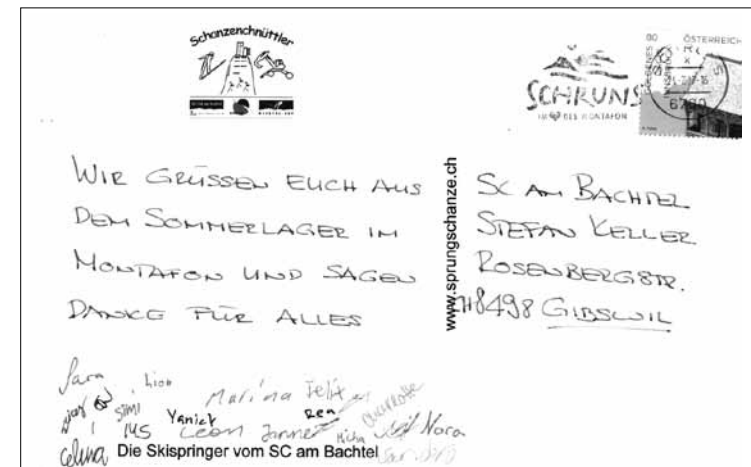 Schanzenchnüttler
SCHRUNS
IM HERZ DES MONTAFON
80
ÖSTERREICH
6780
WIR GRÜSSEN EUCH AUS
DEM SOMMERLAGER IM
MONTAFON UND SAGEN
DANKE FÜR ALLES
www.sprungschanze.ch
SC AM BACHTEL
STEFAN KELLER
ROSENBERGSTR.
CH 8498 GIBSWIL
Sara
Marina Felix
Simi Yanick Rea
Leon Jannet Micha Nora
Celina Die Skispringer vom SC am Bachtel Sandro